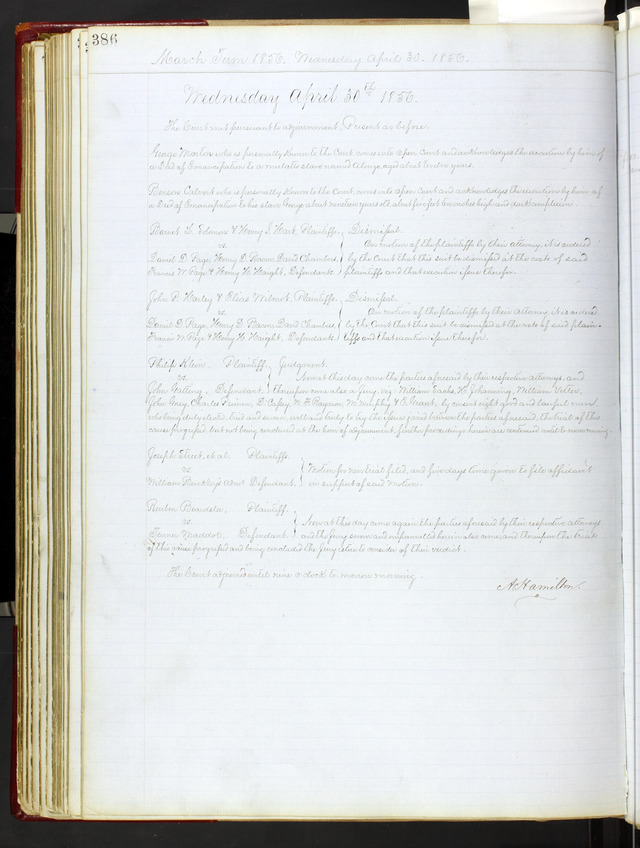 386
March Term 1856. Wednesday April 30. 1856.
Wednesday April 30th 1856.
The Court met pursuant to adjournment, Present as before.
George Morton who is personally known to the Court, comes into open Court and acknowledges the execution by him of
a Deed of Emancipation to a mulatto slave named aged about twelve years.
Benson Calvert who is personally known to the Court, comes into open Court and acknowledges the execution by him of
a Deed of Emancipation to his slave George about nineteen years old, about five feet two inches high and dark complexion.
Barnet G. & Henry I. Hart, Plaintiffs, } Dismissed.
vs. On motion of the plaintiffs by their attorney, it is ordered
Daniel D. Page, Henry D. Bacon, David Chambers, by the Court that this suit be dismissed at the costs of said
Francis W. Page & Henry H. Haight, Defendants. plaintiffs and that execution issue therefor.
John P. Harley & Elias Wilmot, Plaintiffs. } Dismissed.
vs. On motion of the plaintiffs by their Attorney, it is ordered
Daniel D. Page, Henry D. Bacon, David Chambers, by the Court that this suit be dismissed at the costs of said plain-
Francis W. Page & Henry H. Haight, Defendants. tiffs and that execution issue therefor.
Philip Klein, Plaintiff, } Judgment.
vs. Now at this day come the parties aforesaid by their respective attorneys, and
John Defendant. thereupon come also a jury, viz, William H. Johannes, William
John Grey, Charles D. Cafrey, Murphy & E. Grant,
who being duly elected, tried and sworn, well and truly to try the issue joined between the parties aforesaid, the trial of this
cause progressed but not being concluded at the hour of adjournment, further proceedings herein are continued until to-morrow morning.
Joseph Street, et al. Plaintiffs. }
vs. Motion for new trial filed, and five days time given to file affidavit
William Adm't Defendant. in support of said motion.
Reuben Beardslee, Plaintiff. }
vs. Now at this day come again the parties aforesaid by their respective attorneys
Fenner Maddox, Defendant. and the jury sworn and empannelled herein also come, and thereupon the trial
of this cause progressed and being concluded the jury retire to consider of their verdict.
The Court adjourned until nine o'clock to-morrow morning.
A. Hamilton.